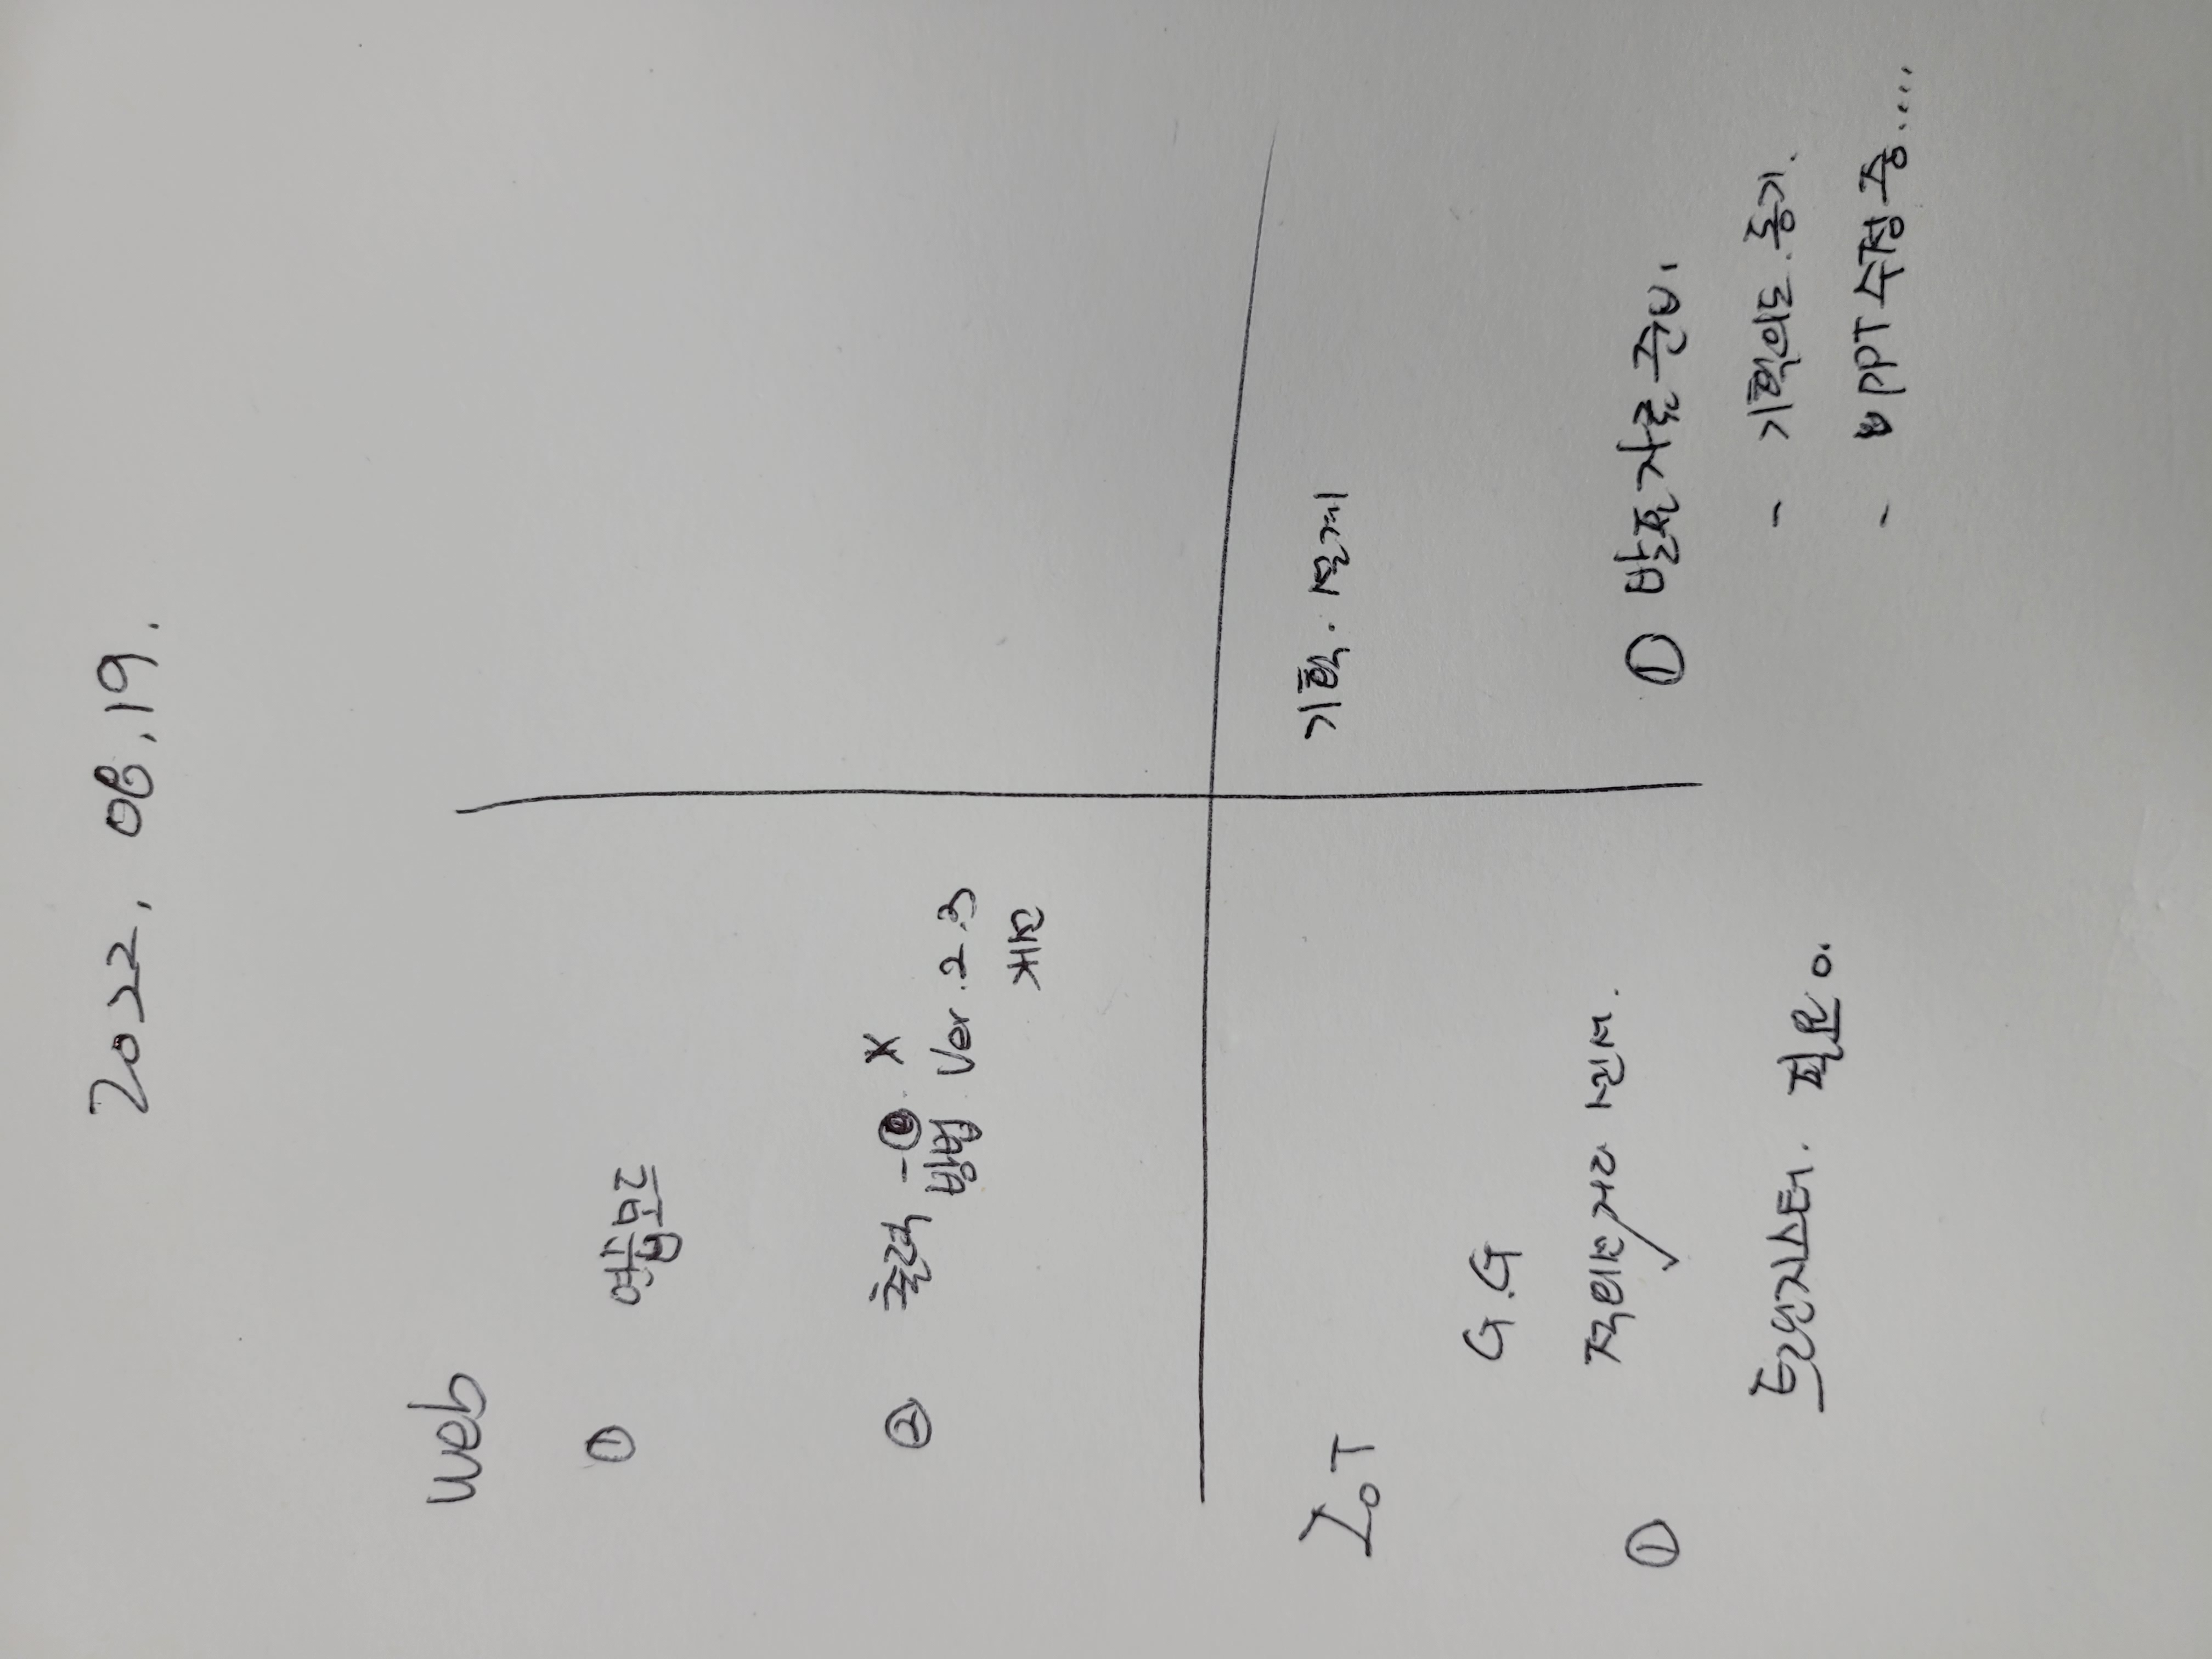 2022. 08.19.
web
① 연습모드
② 출력 - X
방법 Ver.2.3
개선
IoT
G.G
① 적외선 거리 센서.
트랜지스터. 필요 o.
기획. 설계
① 발표자료 준비.
- 기획의도. 동기.
- PPT 수정 중....